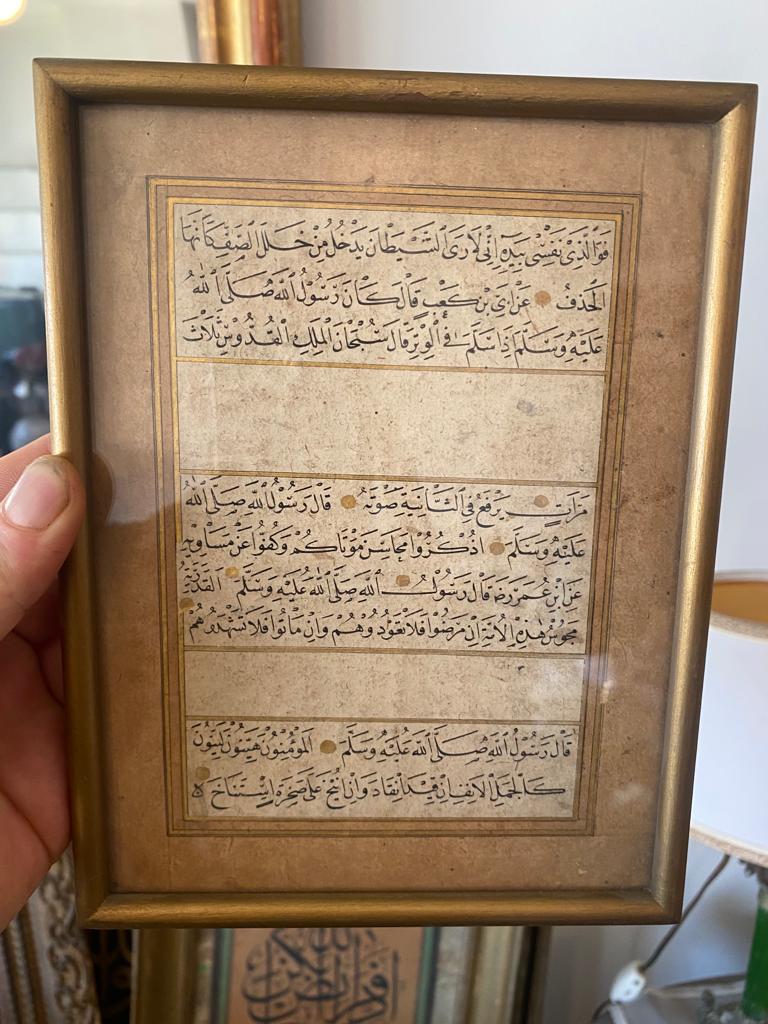 فَوَالَّذِي نَفْسِي بِيَدِهِ إِنِّي لَأَرَى الشَّيْطَانَ يَدْخُلُ مِنْ خَلَلِ الصَّفِّ كَأَنَّهَا
الْحَذَفُ عَنْ أُبَيِّ بْنِ كَعْبٍ قَالَ كَانَ رَسُولُ اللّٰهِ صَلَّى اللّٰهُ
عَلَيْهِ وَسَلَّمَ إِذَا سَلَّمَ فِي الْوِتْرِ قَالَ سُبْحَانَ الْمَلِكِ الْقُدُّوسِ ثَلَاثَ
مَرَّاتٍ يَرْفَعُ فِي الثَّانِيَةِ صَوْتَهُ قَالَ رَسُولُ اللّٰهِ صَلَّى اللّٰهُ
عَلَيْهِ وَسَلَّمَ اذْكُرُوا مَحَاسِنَ مَوْتَاكُمْ وَكُفُّوا عَنْ مَسَاوِيهِمْ
عَنِ ابْنِ عُمَرَ رَضِ قَالَ رَسُولُ اللّٰهِ صَلَّى اللّٰهُ عَلَيْهِ وَسَلَّمَ الْقَدَرِيَّةُ
مَجُوسُ هٰذِهِ الْأُمَّةِ إِنْ مَرِضُوا فَلَا تَعُودُوهُمْ وَإِنْ مَاتُوا فَلَا تَشْهَدُوهُمْ
قَالَ رَسُولُ اللّٰهِ صَلَّى اللّٰهُ عَلَيْهِ وَسَلَّمَ الْمُؤْمِنُونَ هَيِّنُونَ لَيِّنُونَ
كَالْجَمَلِ الْأَنِفِ إِنْ قِيدَ انْقَادَ وَإِنْ أُنِيخَ عَلَى صَخْرَةٍ اسْتَنَاخَ